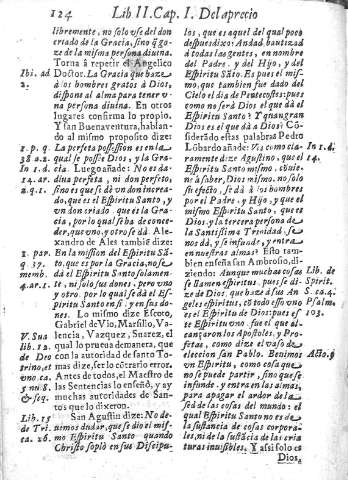 124 Lib II. Cap. I. Del aprecio
libremente, no solo vsе del don
criado de la Gracia, sino q̃ go-
ze de la misma persona diuina.
Torna à repetir el Angelico
Ibi. ad Doctor. La Gracia que haze
2. à los hombres gratos à Dios,
dispone al alma para tener v-
na persona diuina. En otros
lugares confirma lo propio.
Y san Buenaventura, hablan-
do al mismo proposito dize:
1. p. q. La perfeta possession es en la
38 a.2. qual se possee Dios, y la Gra-
In 1.d. cia. Luego añade: No es da-
14.ar. diua perfeta, ni don perfeto,
2.q.1. sino es que se dà vn don increa-
do, que es el Espiritu Santo, y
vn don criado que es la Gra-
cia, por lo qual se ha de conce-
der, que vno, y otro se dà. Ale-
xandro de Ales tambiẽ dize:
1. par. En la mission del Espiritu Sã-
q 37. to, que es por la Gracia, no se
memb. da el Espiritu Santo solamen-
4.ar.1. te, ni solo sus dones, pero vno
y otro, por lo qual se dà el Es-
piritu Santo en si, y en sus do-
nes. Lo mismo dize Escoto,
Gabriel de Vio, Marsilio, Va-
V. Sua lencia, Vazquez, Suarez, el
lib. 12. qual lo prueua de manera, que
de Deo con la autoridad de santo To-
trino, et mas dize, ser lo cõtrario error.
vno. ca. Antes de todos, el Maestro de
5 nu 8. las Sentencias lo enseñó, y ay
& seq. muchas autoridades de San-
tos que lo dixeron.
Lib. 15 San Agustin dize: No de-
de Tri. uimos dudar, que se dio el mis-
ca. 26. mo Espiritu Santo quando
Christo soplò en sus Discipu-
los, que es aquel del qual poco
despues dize: Andad bautizad
à todas las gentes, en nombre
del Padre, y del Hijo, y del
Espiritu Sãto. Es pues el mis-
mo, que tambien fue dado del
Cielo el dia de Pentecostes: pues
como no serà Dios el que dà el
Espiritu Santo? Y quan gran
Dios es el que dà à Dios? Cõ-
siderãdo estas palabras Pedro
Lobardo añade: Ves como cla- In 1.d.
ramente dize Agustino, que el 14.
mismo Espiritu Santo, cõuie-
ne à saber, Dios mismo, no solo
su efecto, se dà à los hombres
por el Padre, y Hijo, y que el
mismo Espiritu Santo, que es
Dios, y la tercera persona de
la Santissima Trinidad, se
nos dà, y se infunde, y entra
en nuestras almas? Esto tam-
bien enseña san Ambrosio, di-
ziendo: Aunque muchas cosas Lib. de
se llamen espiritus, pues se di- Spirit.
ze de Dios, que haze à sus An S. ca. 4.
geles espiritus, cõ todo esso vno Psalm.
es el Espiritu de Dios: pues es- 103.
te Espiritu vno fue el que al-
cançaron los Apostoles, y Pro-
fetas, como dize el vaso de
eleccion san Pablo. Beuimos Acto. 9
vn Espiritu, como cosa que
no se puede partir, sino que se
infunde y entra en las almas,
para apagar el ardor de la
sed de las cosas del mundo: el
qual Espiritu Santo no es de
la sustancia de cosas corpora-
les, ni de la sustãcia de las cria
turas inuisibles. Y assi solo es
Dios,